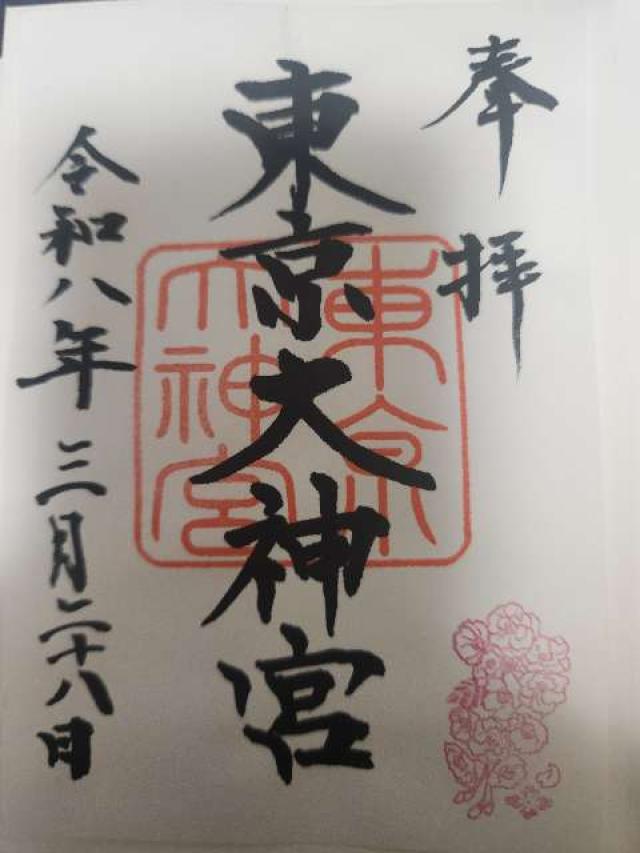 奉拝
東京大神宮
東京
大神宮
令和八年三月二十八日